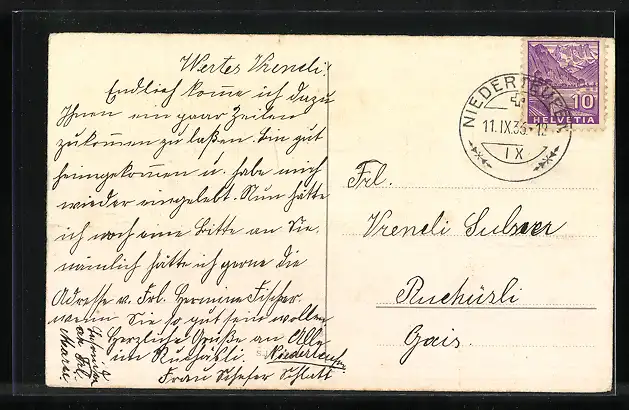 Wertes Vreneli!
Endlich komme ich dazu
Ihnen ein paar Zeilen
zukommen zu laßen. Bin gut
heimgekommen u. habe mich
wieder eingelebt. Nun hätte
ich noch eine Bitte an Sie,
nämlich hätte ich gerne die
Adresse v. Frl. Hermine Fischer.
wenn Sie so gut sein wollen
Herzliche Grüße an Alle
im Ruehüsli. Niederteufen
Frau Schefer Schlatt
an Frl.
NIEDERTEUFEN
11.IX.35
IX
10
HELVETIA
Frl.
Vreneli Sulser
Ruehüsli
Gais.